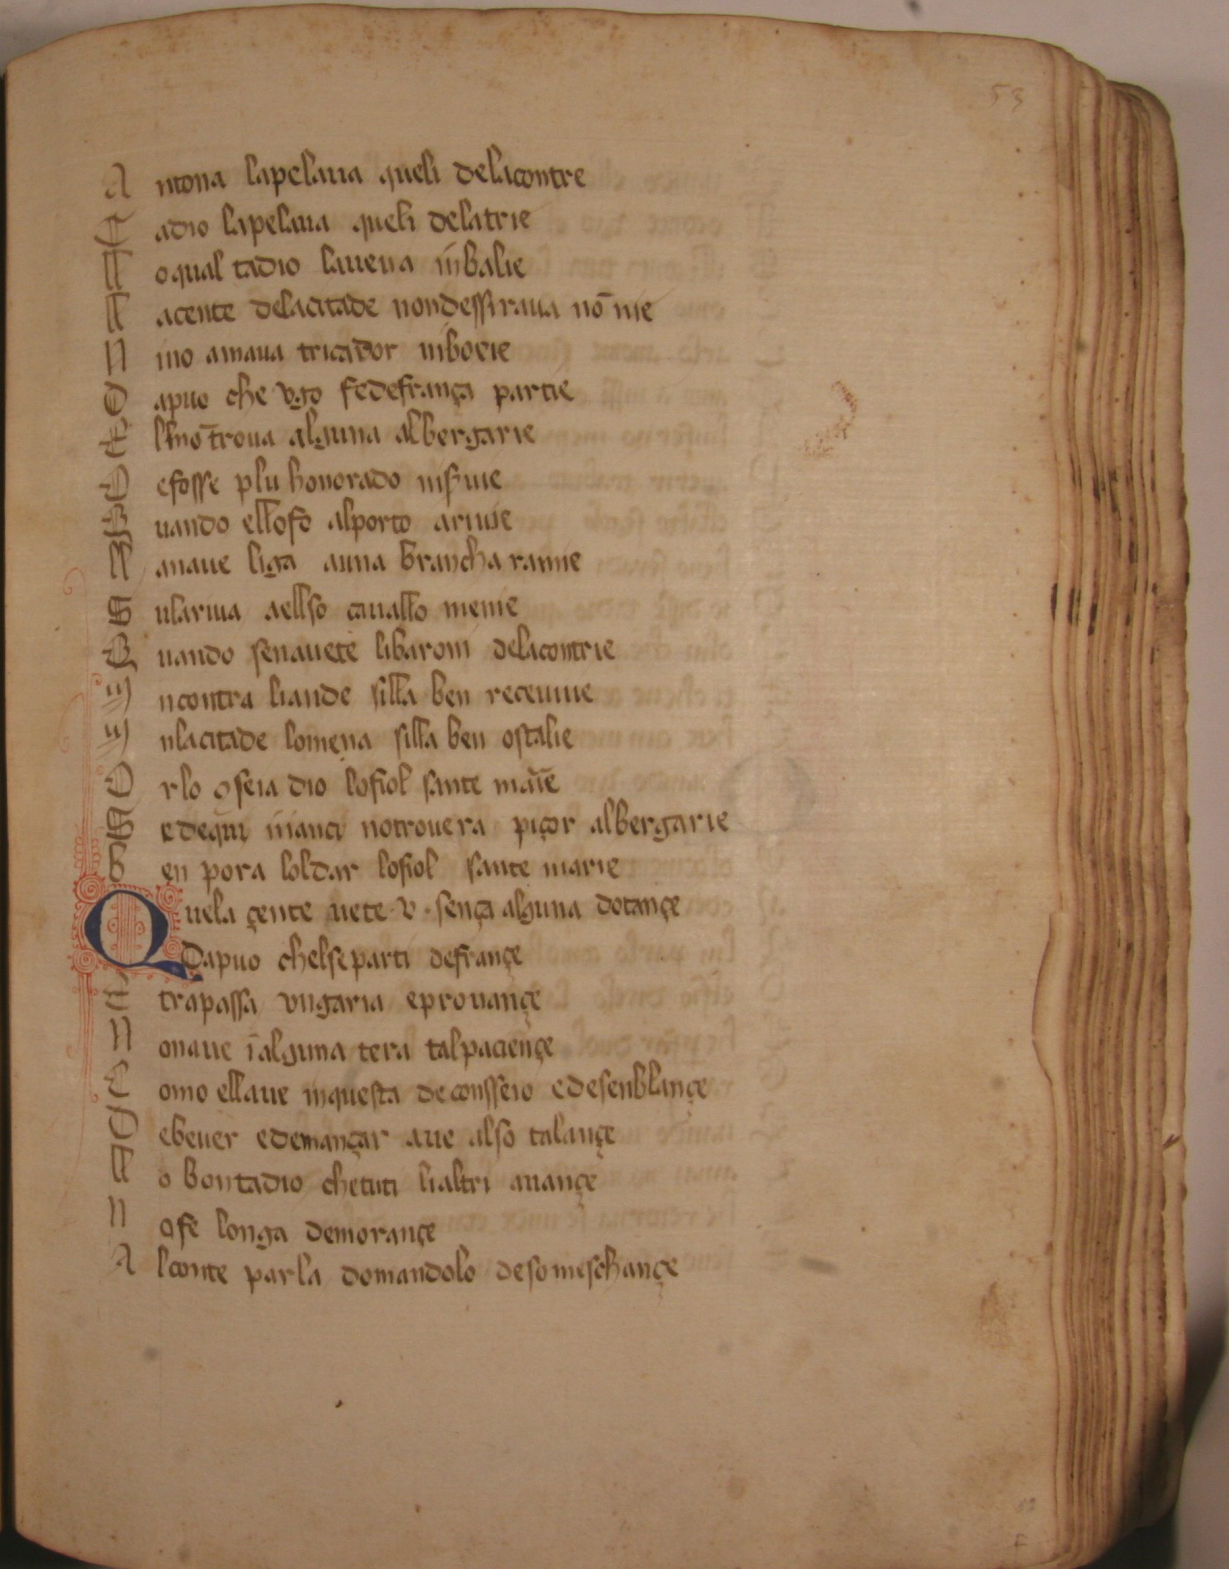 53
A ntona lapelaua queli delacontre
T adio lapelaua queli delatrie
L oqual tadio laueua inbalie
L acente delacitade nondessiraua no nie
N ino amaua tricador niboxie
D apuo che vgo fedefrança partie
E l no troua alguna albergarie
D efosse plu honorado nisuie
Q uando ellofo alporto ariuie
L anaue liga auna brancha ramie
S ulariua aellso cauallo menie
Q uando senauete libaroni delacontrie
I ncontra liande silla ben receuuie
I nlacitade lomena silla ben ostalie
O rlo ɔseia dio lofiol sante marie
S edequi inanci notrouera piçor albergarie
B en pora loldar lofiol sante marie
Quela çente uete v sença alguna dotançe
Dapuo chelseparti defrançe
E trapassa vngaria eprouançe
N onaue ialguna tera talpaciençe
C omo ellaue inquesta deconsseio edesenblançe
D ebeuer edemançar aue also talançe
L o bontadio chetuti lialtri auançe
N ɔfe longa demorançe
A lconte parla domandolo desomeschançe